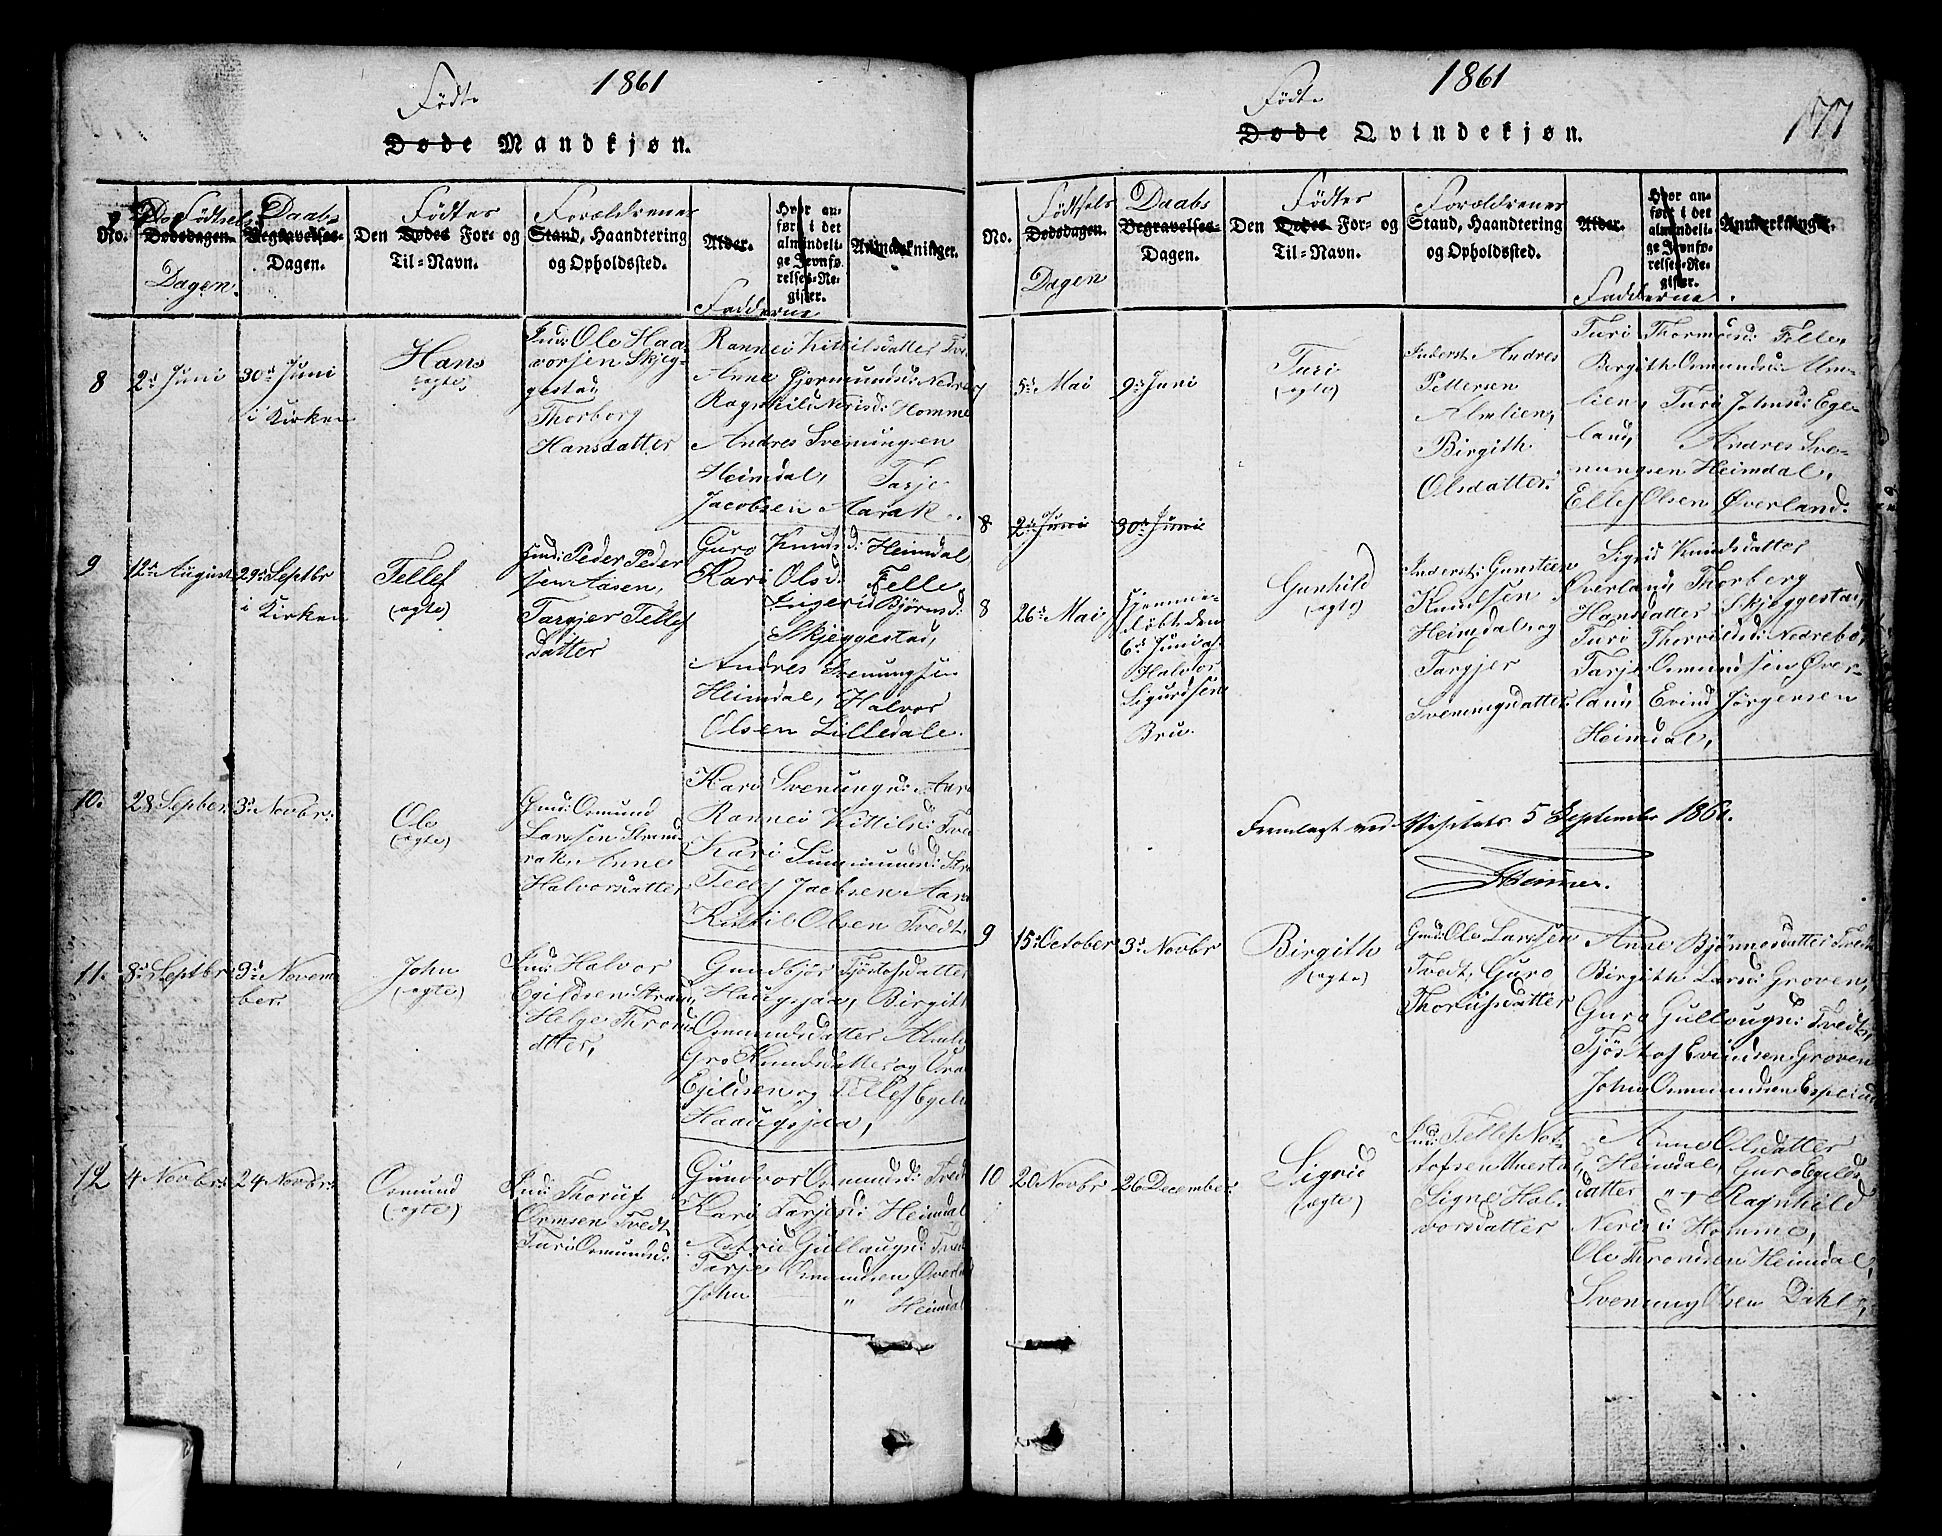 1861
Födte
Døde Mandkjøn.
No.
Födsels
Dødsdagen.
Dagen.
Daabs
Begravelses-
Dagen.
Den Dødes For- og
Födtes
Til-Navn.
Forældrenes
Stand, Haandtering
og Opholdssted.
Alder.
Hvor an-
ført i det
almindeli-
ge Jevnfø-
relses-Re-
gister.
Anmærkninger.
Fadderne
8
2d Juni
30d Juni
i Kirken
Hans
(ægte)
Ind: Ole Haa
vorsen Skjeg-
gestad
Thorborg
Hansdatter
Rannei Kittilsdatter
Anne Gjermundsd: Nedrebø
Ragnhild Nerisd: Homme
Andres Svenungsen
Heimdal, Tarje
Jacobsen Aarak.
9
12d August
29d Septbr
i Kirken
Tellef
(ægte)
Gmd: Peder Peder
sen Aasen,
Targjer Tellefs
datter
Guro Knudsd: Heimdal
Kari Olsd. Felle
Ingerid Bjørnsd:
Skjeggestad,
Andres Svenungsen
Heimdal, Halvor
Olsen Lilledale.
10.
28 Septber
3d Novbr:
Ole
(ægte)
Gmd: Osmund
Larssen Strand
rak, Anne
Halvorsdatter
Kari Svenungsd:
Rannei Kittilsd:
Kari Gunmundsd:
Tellef Jacobsen
Kittil Olsen Tvedt.
11.
8d Septbr
9d Novem
ber
John
(ægte)
Ind: Halvor
Egildsen Strand,
Helge Thron
dtter,
Gundbjør Tjöstofsdatter
Haugsjaa, Birgith
Osmundsdatter
Gro Knudsdatter og
Egildsen og Tellef Egils
Haaugsjaa,
12
4 Novbr:
24 Novbr:
Osmund
(ægte)
Ind: Thoruf
Ormsen Tvedt
Turi Osmundsd:
Gunvor Osmundsd: Tvedt
Kari Tarjesd: Heimdal
Gullaugsd: Tvedt
Tarje Osmundsen Överland
John " Heimdal
1861
177
Födte
Døde Qvindekjøn.
No.
Födsels
Dødsdagen.
Dagen
Daabs
Begravelses-
Dagen.
Födtes
Den Dødes For- og
Til-Navn.
Forældrenes
Stand, Haandtering
og Opholdssted.
Alder.
Hvor an-
ført i det
almindeli-
ge Jevnfø-
relses-Re-
gister.
Anmærkninger.
Fadderne.
7
5d Mai
9d Juni
Turi
(ægte)
Inderst: Andres
Pettersen
Almlien,
Birgith
Olsdatter.
Turi Thormodsd: Felle,
Birgith Osmundsd: Alm-
lien, Turi Johnsd: Ege-
land, Andres Sve-
nungsen Heimdal,
Ellef Olsen Øverland.
8
2d Juni
30d Juni
8
26d Mai
Hjemme-
døbt den
6d Juni af
Halvor
Sigurdsen
Bru.
Gunhild
(ægte)
Inderst: Gunsteen
Knudsen
Heimdal og
Targjer
Svenungsdatter
Sigrid Knudsdatter
Överland, Thorberg
Hansdatter Skjeggestad,
Turi Thorvildsd: Nedrebö,
Tarje Osmundsen Över-
land, Evind Jörgensen
Heimdal,
Fremlagt ved Visitats 5 September 1861.
9
15d October
3d Novbr
Birgith
(ægte)
Gmd: Ole Larssen
Tvedt, Guro
Thorufsdatter
Anne Bjönnesdatter
Birgith Larsd: Groven,
Guro Gullaugsd: Tvedt,
Tjöstof Evindsen Groven
John Osmundsen Espelid
10
20 Novbr
26 December:
Sigrid
(ægte)
Ind: Tellef
Signe Hal-
vorsdatter
Anne Olsdatter
Heimdal, Guro Egilds-
datter " Ragnhild
Nerisd: Homme,
Ole Throndsen Heimdal,
Svenung Olsen Dahl,